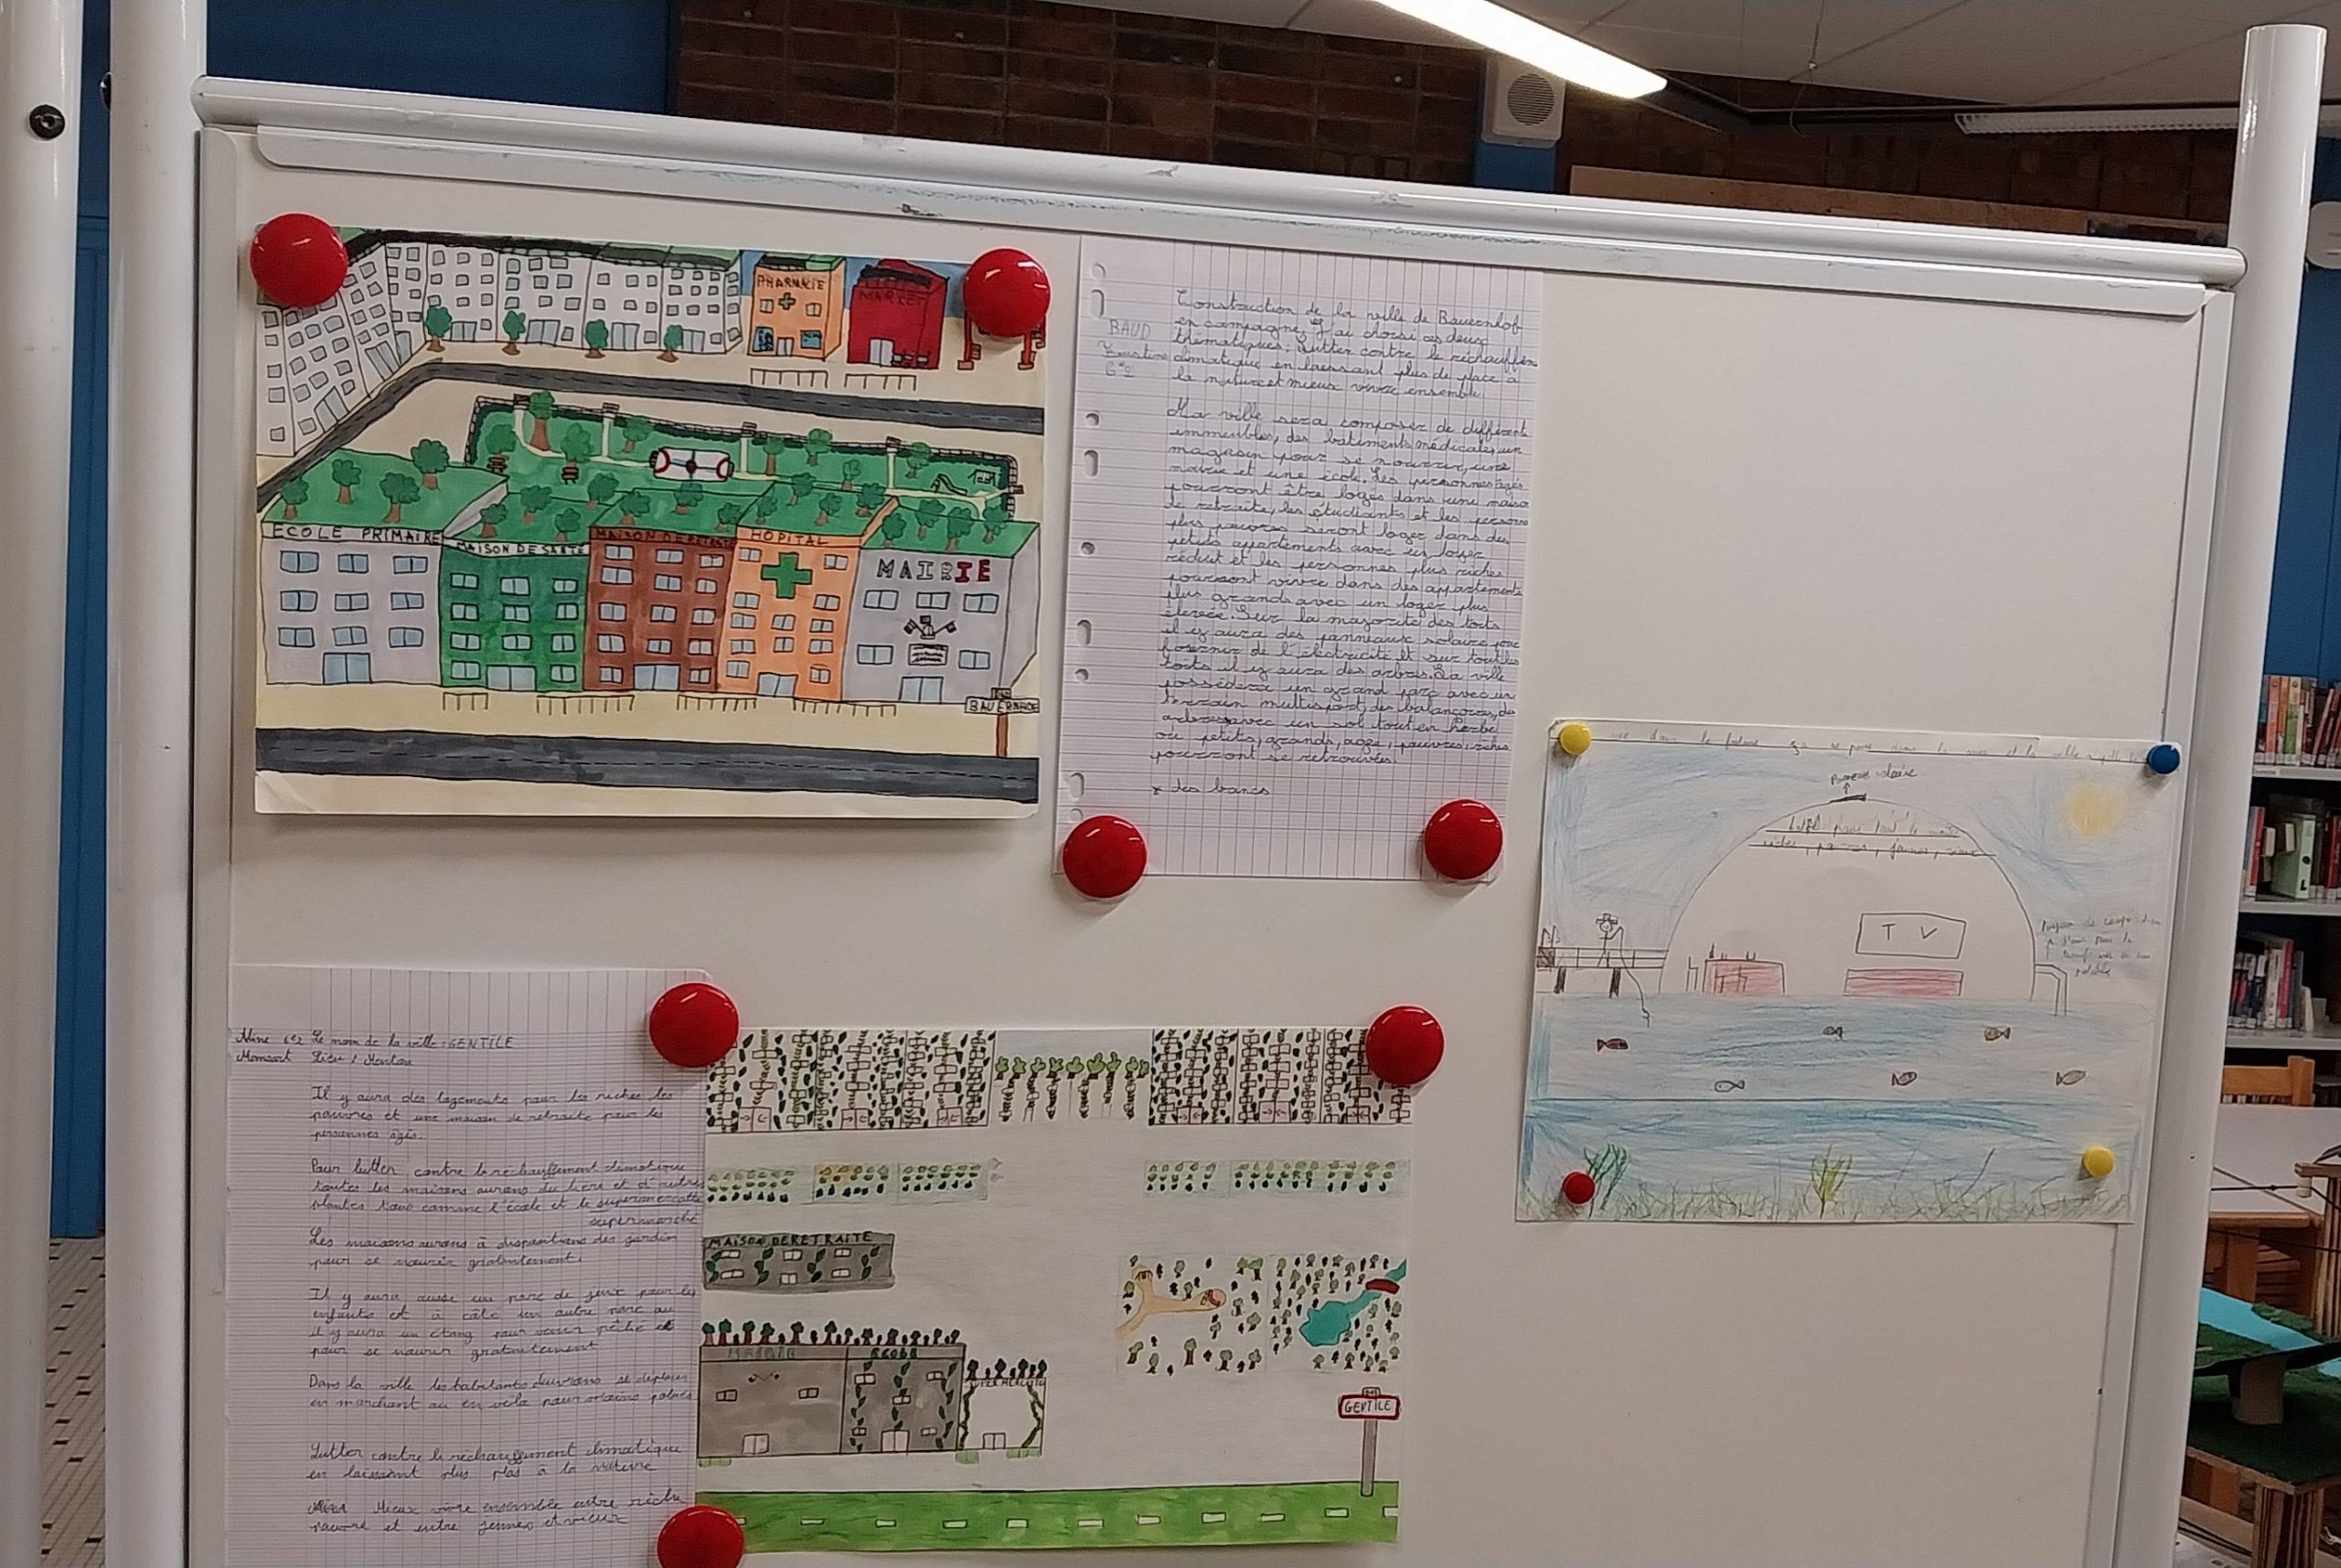 PHARMACIE
MARKET
ECOLE PRIMAIRE
MAISON DE SANTE
MAISON DE RETRAITE
HOPITAL
MAIRIE
BAUERNHOF
BAUD
6e
Construction de la ville de Bauernhof
en campagne. J'ai choisi ces deux
thématiques: Lutter contre le réchauffem
climatique en laissant plus de place à
la nature et mieux vivre ensemble.
Ma ville sera composer de différents
immeubles, des bâtiments médicales, un
magasin pour se nourrir, une
mairie et une école. Les personnes agés
pourront être loges dans une maison
de retraite, les étudiants et les personnes
plus pauvres seront loger dans des
petits appartements avec un loyer
réduit et les personnes plus riches
pourront vivre dans des appartements
plus grands avec un loyer plus
élevée. Sur la majorité des toits
il y aura des panneaux solaire pour
fournir de l'électricité et sur tout les
toits il y aura des arbres. La ville
possédera un grand parc avec un
terrain multisport, des balançoires, des
arbres avec un sol tout en herbe
où petits, grands, agé, pauvres, riches
pourront se retrouver.
* des bancs
dans le future ça se passe dans la mer et la ville
Panneau solaire
pour tout le monde
riches, pauvres, jeunes, vieux
TV
potable
6e2 Le nom de la ville : GENTILE
Lieu : Menton
Il y aura des logements pour les riches les
pauvres et une maison de retraite pour les
personnes âgés.
Pour lutter contre le réchauffement climatique
toutes les maisons aurons du lierre et d'autres
plantes tous comme l'école et le supermercatto
supermarché
Les maisons aurons à disposition des jardin
pour se nourir gratuitement.
Il y aura aussi un parc de jeux pour les
enfants et à côté un autre parc au
il y aura un étang pour venir pêché et
pour se nourir gratuitement
Dans la ville les habitants devrons se déplacer
en marchant ou en vélo pour moins polués
Lutter contre le réchauffement climatique
en laissant plus plas à la nature
Mieux vivre ensemble entre riche
pauvre et entre jeunes et vieux
MAISON DE RETRAITE
MAIRIE
ECOLE
SUPERMERCATTO
GENTILE